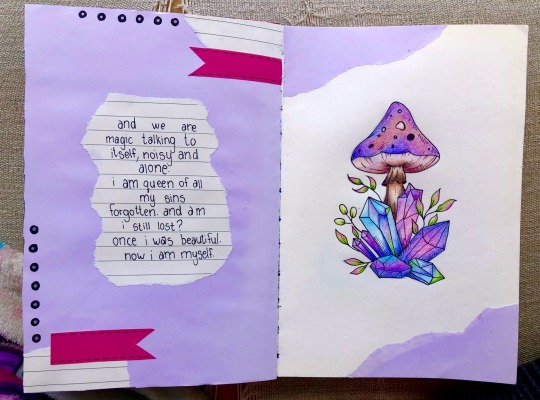 and we are
magic talking to
itself, noisy and
alone.
i am queen of all
my sins
forgotten. and am
i still lost?
once i was beautiful.
now i am myself.